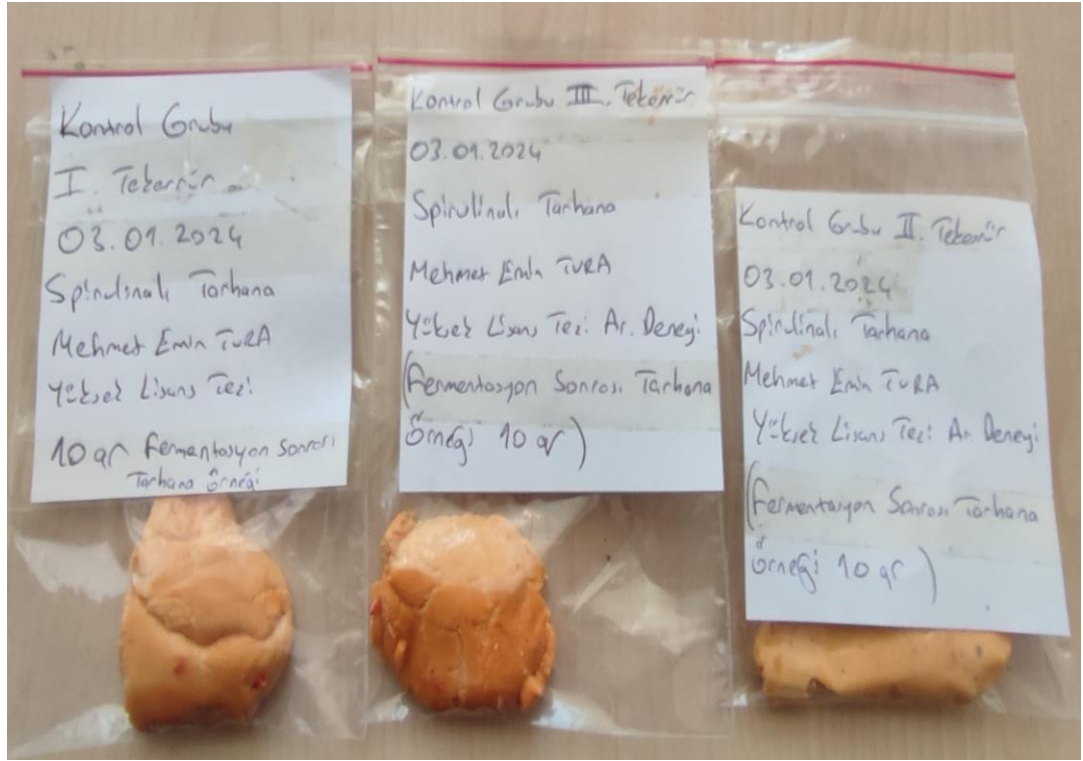 Kontrol Grubu
I. Tekerrür
03.01.2024
Spirulinalı Tarhana
Mehmet Emin TURA
Yüksek Lisans Tezi
10 gr Fermentasyon Sonrası
Tarhana örneği
Kontrol Grubu III. Tekerrür
03.01.2024
Spirulinalı Tarhana
Mehmet Emin TURA
Yüksek Lisans Tezi Ar. Deneyi
(Fermentasyon Sonrası Tarhana
örneği 10 gr)
Kontrol Grubu II. Tekerrür
03.01.2024
Spirulinalı Tarhana
Mehmet Emin TURA
Yüksek Lisans Tezi Ar. Deneyi
(Fermentasyon Sonrası Tarhana
örneği 10 gr)